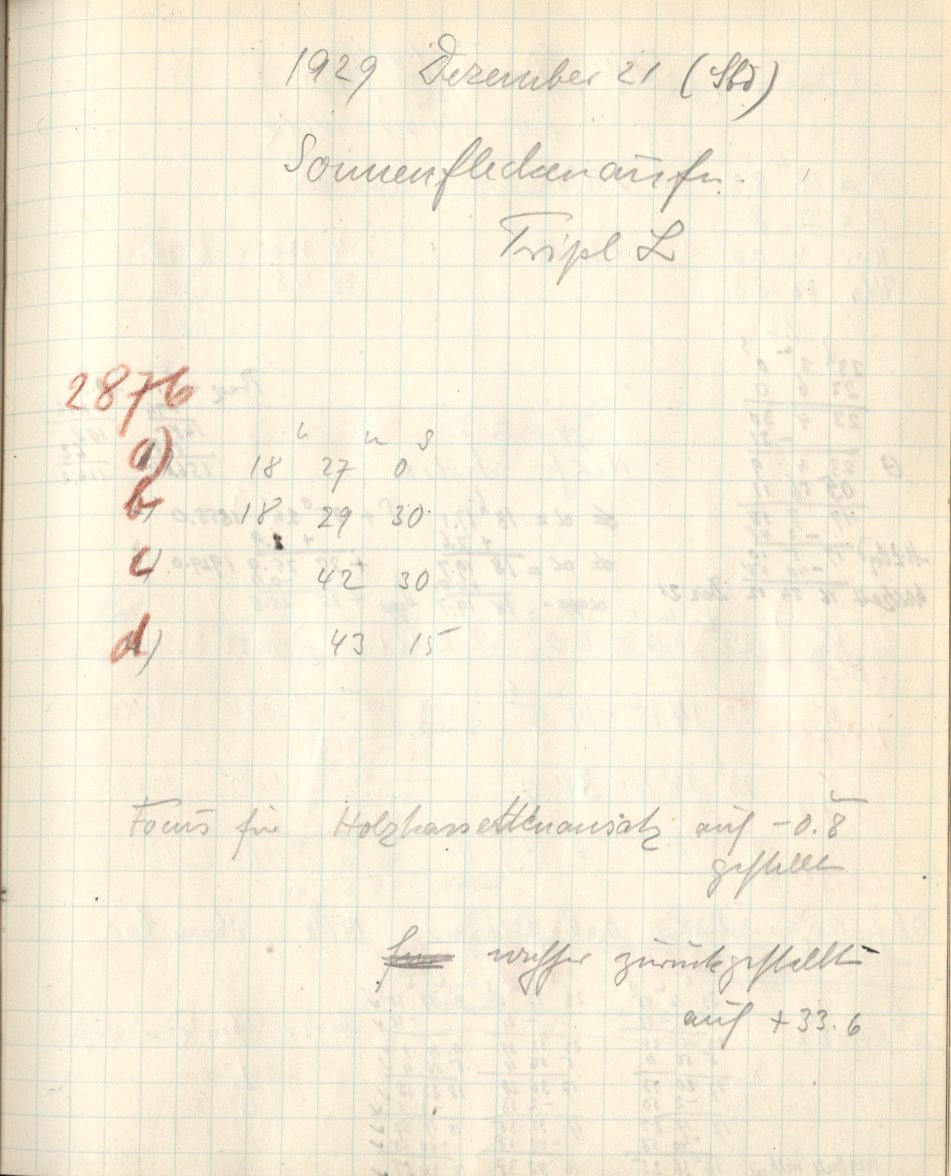 1929 Dezember 21 (Sbd)
Sonnenfleckenaufn.
Tripl L
2876
h m s
a) 18 27 0
b) 18 29 30
c) 42 30
d) 43 15
Focus für Holzkassettenansatz auf -0.8
gestellt
zurückgestellt
auf +33.6